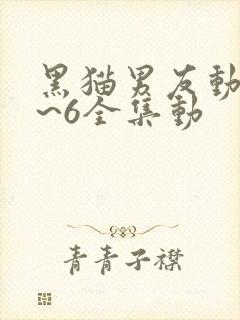 黑猫男友動
~6全集動
青青子襟